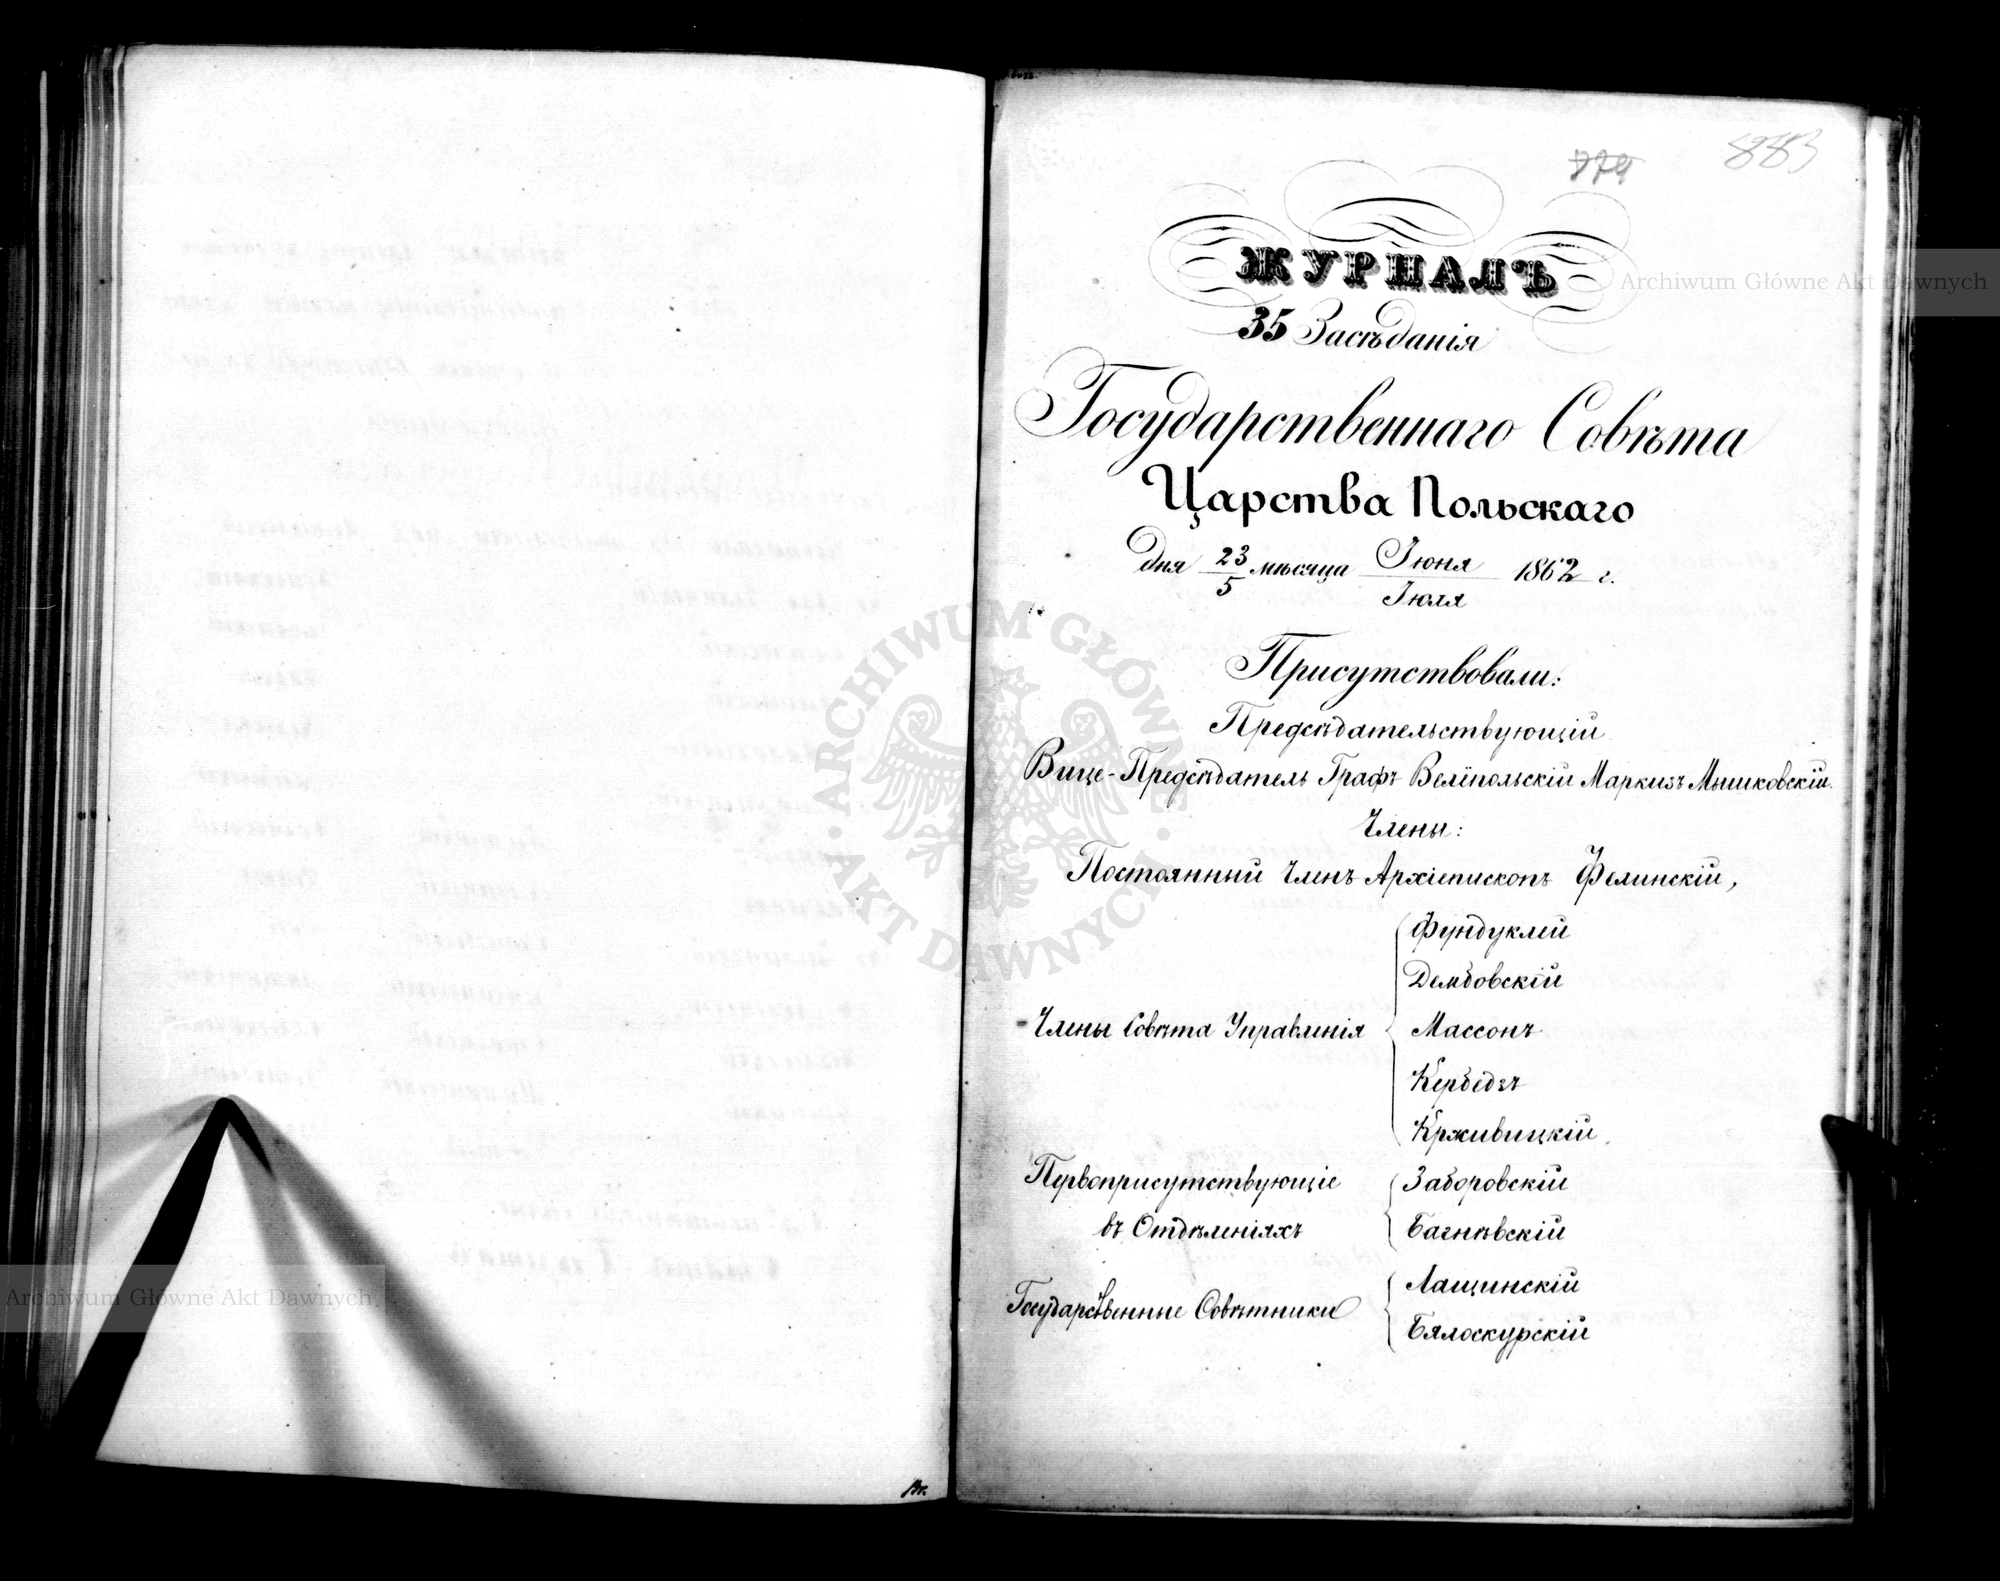 879
883
ЖУРНАЛЪ
35 Засѣданія
Государственнаго Совѣта
Царства Польскаго
Дня 23/5 мѣсяца Іюня/Іюля 1862 г.
Присутствовали:
Предсѣдательствующій
Вице-Предсѣдатель Графъ Велёпольскій Маркизъ Мышковскій.
Члены:
Постоянный Членъ Архіепископъ Фелинскій,
Члены Совѣта Управленія
Фундуклей
Дембовскій
Массонъ
Кербедзъ
Крживицкій.
Первоприсутствующіе
въ Отдѣленіяхъ
Заборовскій
Багнѣвскій
Государственные Совѣтники
Лащинскій
Бялоскурскій
Archiwum Główne Akt Dawnych
ARCHIWUM GŁÓWNE AKT DAWNYCH
Archiwum Główne Akt Dawnych